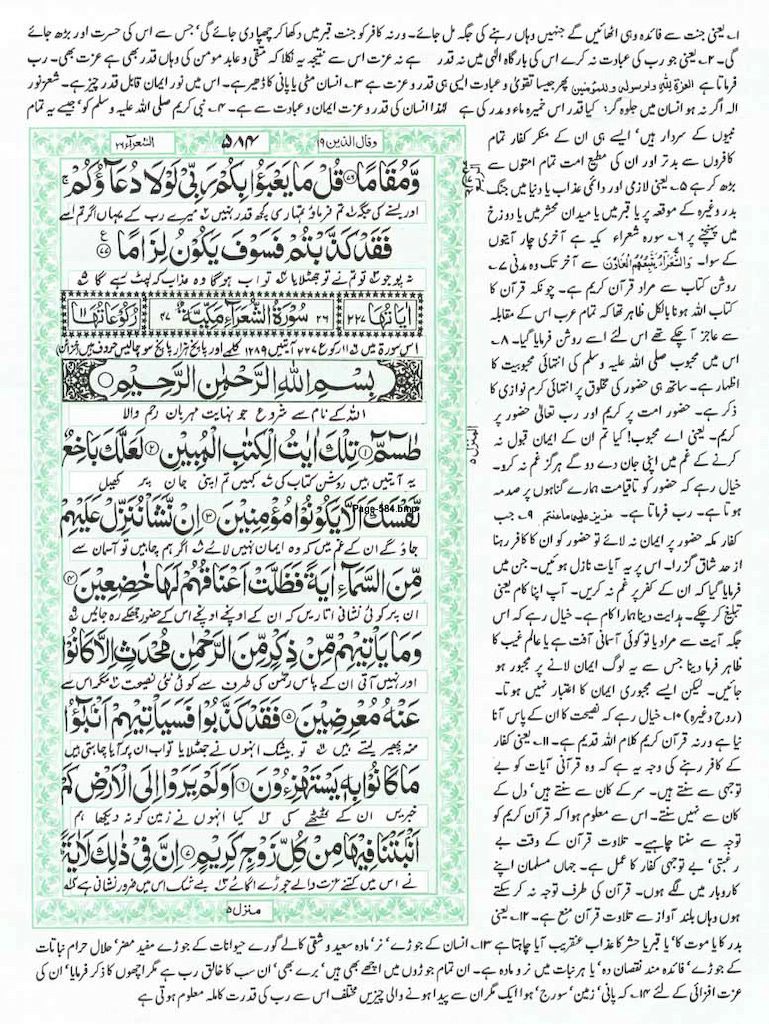 ۱۔ یعنی جنت سے فائدہ وہی اٹھائیں گے جنہیں وہاں رہنے کی جگہ مل جائے۔ ورنہ کافر کو جنت قبر میں دکھا کر چھپا دی جائے گی' جس سے اس کی حسرت اور بڑھ جائے
گی۔ ۲۔ یعنی جو رب کی عبادت نہ کرے اس کی بارگاہ الٰہی میں نہ قدر ہے نہ عزت اس سے نتیجہ یہ نکلا کہ متقی و عابد مومن کی وہاں قدر بھی ہے عزت بھی۔ رب
فرماتا ہے العزة لله ولرسوله وللمؤمنین پھر جیسا تقویٰ و عبادت ایسی ہی قدر و عزت ہے ۳۔ انسان مٹی یا پانی کا ڈھیر ہے۔ اس میں نور ایمان قابل قدر چیز ہے۔ شعر نور
الہ اگر نہ ہو انسان میں جلوہ گر: کیا قدر اس خمیرہ ماء و مدر کی ہے لہٰذا انسان کی قدر و عزت ایمان و عبادت سے ہے۔ ۴۔ نبی کریم صلی اللہ علیہ وسلم کو' جیسے یہ تمام
وقال الذین ۱۹
۵۸۴
الشعرآء ۲۶
وَّمُقَامًا ۝۷۶ قُلْ مَا یَعْبَؤُا بِكُمْ رَبِّیْ لَوْلَا دُعَآؤُكُمْ ۚ
اور بسنے کی جگہ تم فرماؤ تمہاری کچھ قدر نہیں میرے رب کے یہاں اگر تم اسے
فَقَدْ كَذَّبْتُمْ فَسَوْفَ یَكُوْنُ لِزَامًا ۝۷۷
نہ پوجو تو تم نے تو جھٹلایا تو اب ہوگا وہ عذاب کہ لپٹ رہے گا
اٰیَاتُهَا ۲۲۷ ۲۶ سُوْرَةُ الشُّعَرَآءِ مَكِّیَّةٌ ۴۷ رُكُوْعَاتُهَا ۱۱
اس سورة میں ۱۱ رکوع ۲۲۷ آیتیں ۱۲۷۹ کلمے اور پانچ ہزار پانچ سو چالیس حروف ہیں (خزائن)
بِسْمِ اللّٰهِ الرَّحْمٰنِ الرَّحِیْمِ
اللہ کے نام سے شروع جو نہایت مہربان رحم والا
طٰسٓمّٓ ۝۱ تِلْكَ اٰیٰتُ الْكِتٰبِ الْمُبِیْنِ ۝۲ لَعَلَّكَ بَاخِعٌ
یہ آیتیں ہیں روشن کتاب کی کہیں تم اپنی جان پر کھیل
نَّفْسَكَ اَلَّا یَكُوْنُوْا مُؤْمِنِیْنَ ۝۳ اِنْ نَّشَاْ نُنَزِّلْ عَلَیْهِمْ
Page-584.bmp
جاؤ گے ان کے غم میں کہ وہ ایمان نہیں لائے اگر ہم چاہیں تو آسمان سے
مِّنَ السَّمَآءِ اٰیَةً فَظَلَّتْ اَعْنَاقُهُمْ لَهَا خٰضِعِیْنَ ۝۴
ان پر کوئی نشانی اتاریں کہ ان کے اونچے اونچے اس کے حضور جھکے رہ جائیں
وَمَا یَاْتِیْهِمْ مِّنْ ذِكْرٍ مِّنَ الرَّحْمٰنِ مُحْدَثٍ اِلَّا كَانُوْا
اور نہیں آتی ان کے پاس رحمٰن کی طرف سے کوئی نئی نصیحت مگر اس سے
عَنْهُ مُعْرِضِیْنَ ۝۵ فَقَدْ كَذَّبُوْا فَسَیَاْتِیْهِمْ اَنْۢبٰٓؤُا
منہ پھیر لیتے ہیں تو بیشک انہوں نے جھٹلایا تو اب ان پر آیا چاہتی ہیں
مَا كَانُوْا بِهٖ یَسْتَهْزِءُوْنَ ۝۶ اَوَلَمْ یَرَوْا اِلَى الْاَرْضِ كَمْ
خبریں ان کے ٹھٹھے کی کیا انہوں نے زمین کو نہ دیکھا ہم
اَنْۢبَتْنَا فِیْهَا مِنْ كُلِّ زَوْجٍ كَرِیْمٍ ۝۷ اِنَّ فِیْ ذٰلِكَ لَاٰیَةً ؕ
نے اس میں کتنے عزت والے جوڑے اگائے بے شک اس میں ضرور نشانی ہے
منزل ۵
المنزل ۵
نبیوں کے سردار ہیں' ایسے ہی ان کے منکر کفار تمام
کافروں سے بدتر اور ان کی مطیع امت تمام امتوں سے
بڑھ کر ہے ۵۔ یعنی لازی اور دائمی عذاب یا دنیا میں جنگ
بدر وغیرہ کے موقعہ پر یا قبر میں یا میدان محشر میں یا دوزخ
میں پہنچنے پر ۶۔ سورہ شعراء مکیہ ہے آخری چار آیتوں
کے سوا۔ وَالشُّعَرَآءُ یَتَّبِعُهُمُ الْغَاوٗنَ سے آخر تک وہ مدنی ۷۔
روشن کتاب سے مراد قرآن کریم ہے۔ چونکہ قرآن کا
کتاب اللہ ہونا بالکل ظاہر تھا کہ تمام عرب اس کے مقابلہ
سے عاجز آچکے تھے اس لئے اسے روشن فرمایا گیا۔ ۸۔
اس میں محبوب صلی اللہ علیہ وسلم کی انتہائی محبوبیت کا
اظہار ہے۔ ساتھ ہی حضور کی مخلوق پر انتہائی کرم نوازی کا
ذکر ہے۔ حضور امت پر کریم اور رب تعالیٰ حضور پر
کریم۔ یعنی اے محبوب! کیا تم ان کے ایمان قبول نہ
کرنے کے غم میں اپنی جان دے دو گے ہرگز غم نہ کرو۔
خیال رہے کہ حضور کو تاقیامت ہمارے گناہوں پر صدمہ
ہوتا ہے۔ رب فرماتا ہے۔ عزیز علیه ماعنتم ۹۔ جب
کفار مکہ حضور پر ایمان نہ لائے تو حضور کو ان کا کافر رہنا
از حد شاق گزرا۔ اس پر یہ آیات نازل ہوئیں۔ جن میں
فرمایا گیا کہ ان کے کفر پر غم نہ کریں۔ آپ اپنا کام یعنی
تبلیغ کر چکے۔ ہدایت دینا ہمارا کام ہے۔ خیال رہے کہ اس
جگہ آیت سے مراد یا تو کوئی آسمانی آفت ہے یا عالم غیب کا
ظاہر فرما دینا جس سے یہ لوگ ایمان لانے پر مجبور ہو
جائیں۔ لیکن ایسے مجبوری ایمان کا اعتبار نہیں ہوتا۔
(روح وغیرہ) ۱۰۔ خیال رہے کہ نصیحت کا ان کے پاس آنا
نیا ہے ورنہ قرآن کریم کلام اللہ قدیم ہے۔ ۱۱۔ یعنی کفار
کے کافر رہنے کی وجہ یہ ہے کہ وہ قرآنی آیات کو بے
توجہی سے سنتے ہیں۔ سر کے کان سے سنتے ہیں' دل کے
کان سے نہیں سنتے۔ اس سے معلوم ہوا کہ قرآن کریم کو
توجہ سے سننا چاہیے۔ تلاوت قرآن کے وقت بے
رغبتی' بے توجہی کفار کا عمل ہے۔ جہاں مسلمان اپنے
کاروبار میں لگے ہوں۔ قرآن کی طرف توجہ نہ کر سکتے
ہوں وہاں بلند آواز سے تلاوت قرآن منع ہے۔ ۱۲۔ یعنی
بدر کا یا موت کا' یا قبر یا حشر کا عذاب عنقریب آیا چاہتا ہے ۱۳۔ انسان کے جوڑے' نر' مادہ سعید و شقی کالے گورے حیوانات کے جوڑے مفید مضر' حلال حرام نباتات
کے جوڑے' فائدہ مند نقصان دہ' یا ہر نبات میں نر و مادہ ہے۔ ان تمام جوڑوں میں اچھے بھی ہیں' برے بھی' ان سب کا خالق رب ہے مگر اچھوں کا ذکر فرمایا' ان کی
عزت افزائی کے لئے ۱۴۔ کہ پانی' زمین' سورج' ہوا ایک مگر ان سے پیدا ہونے والی چیزیں مختلف اس سے رب کی قدرت کاملہ معلوم ہوتی ہے